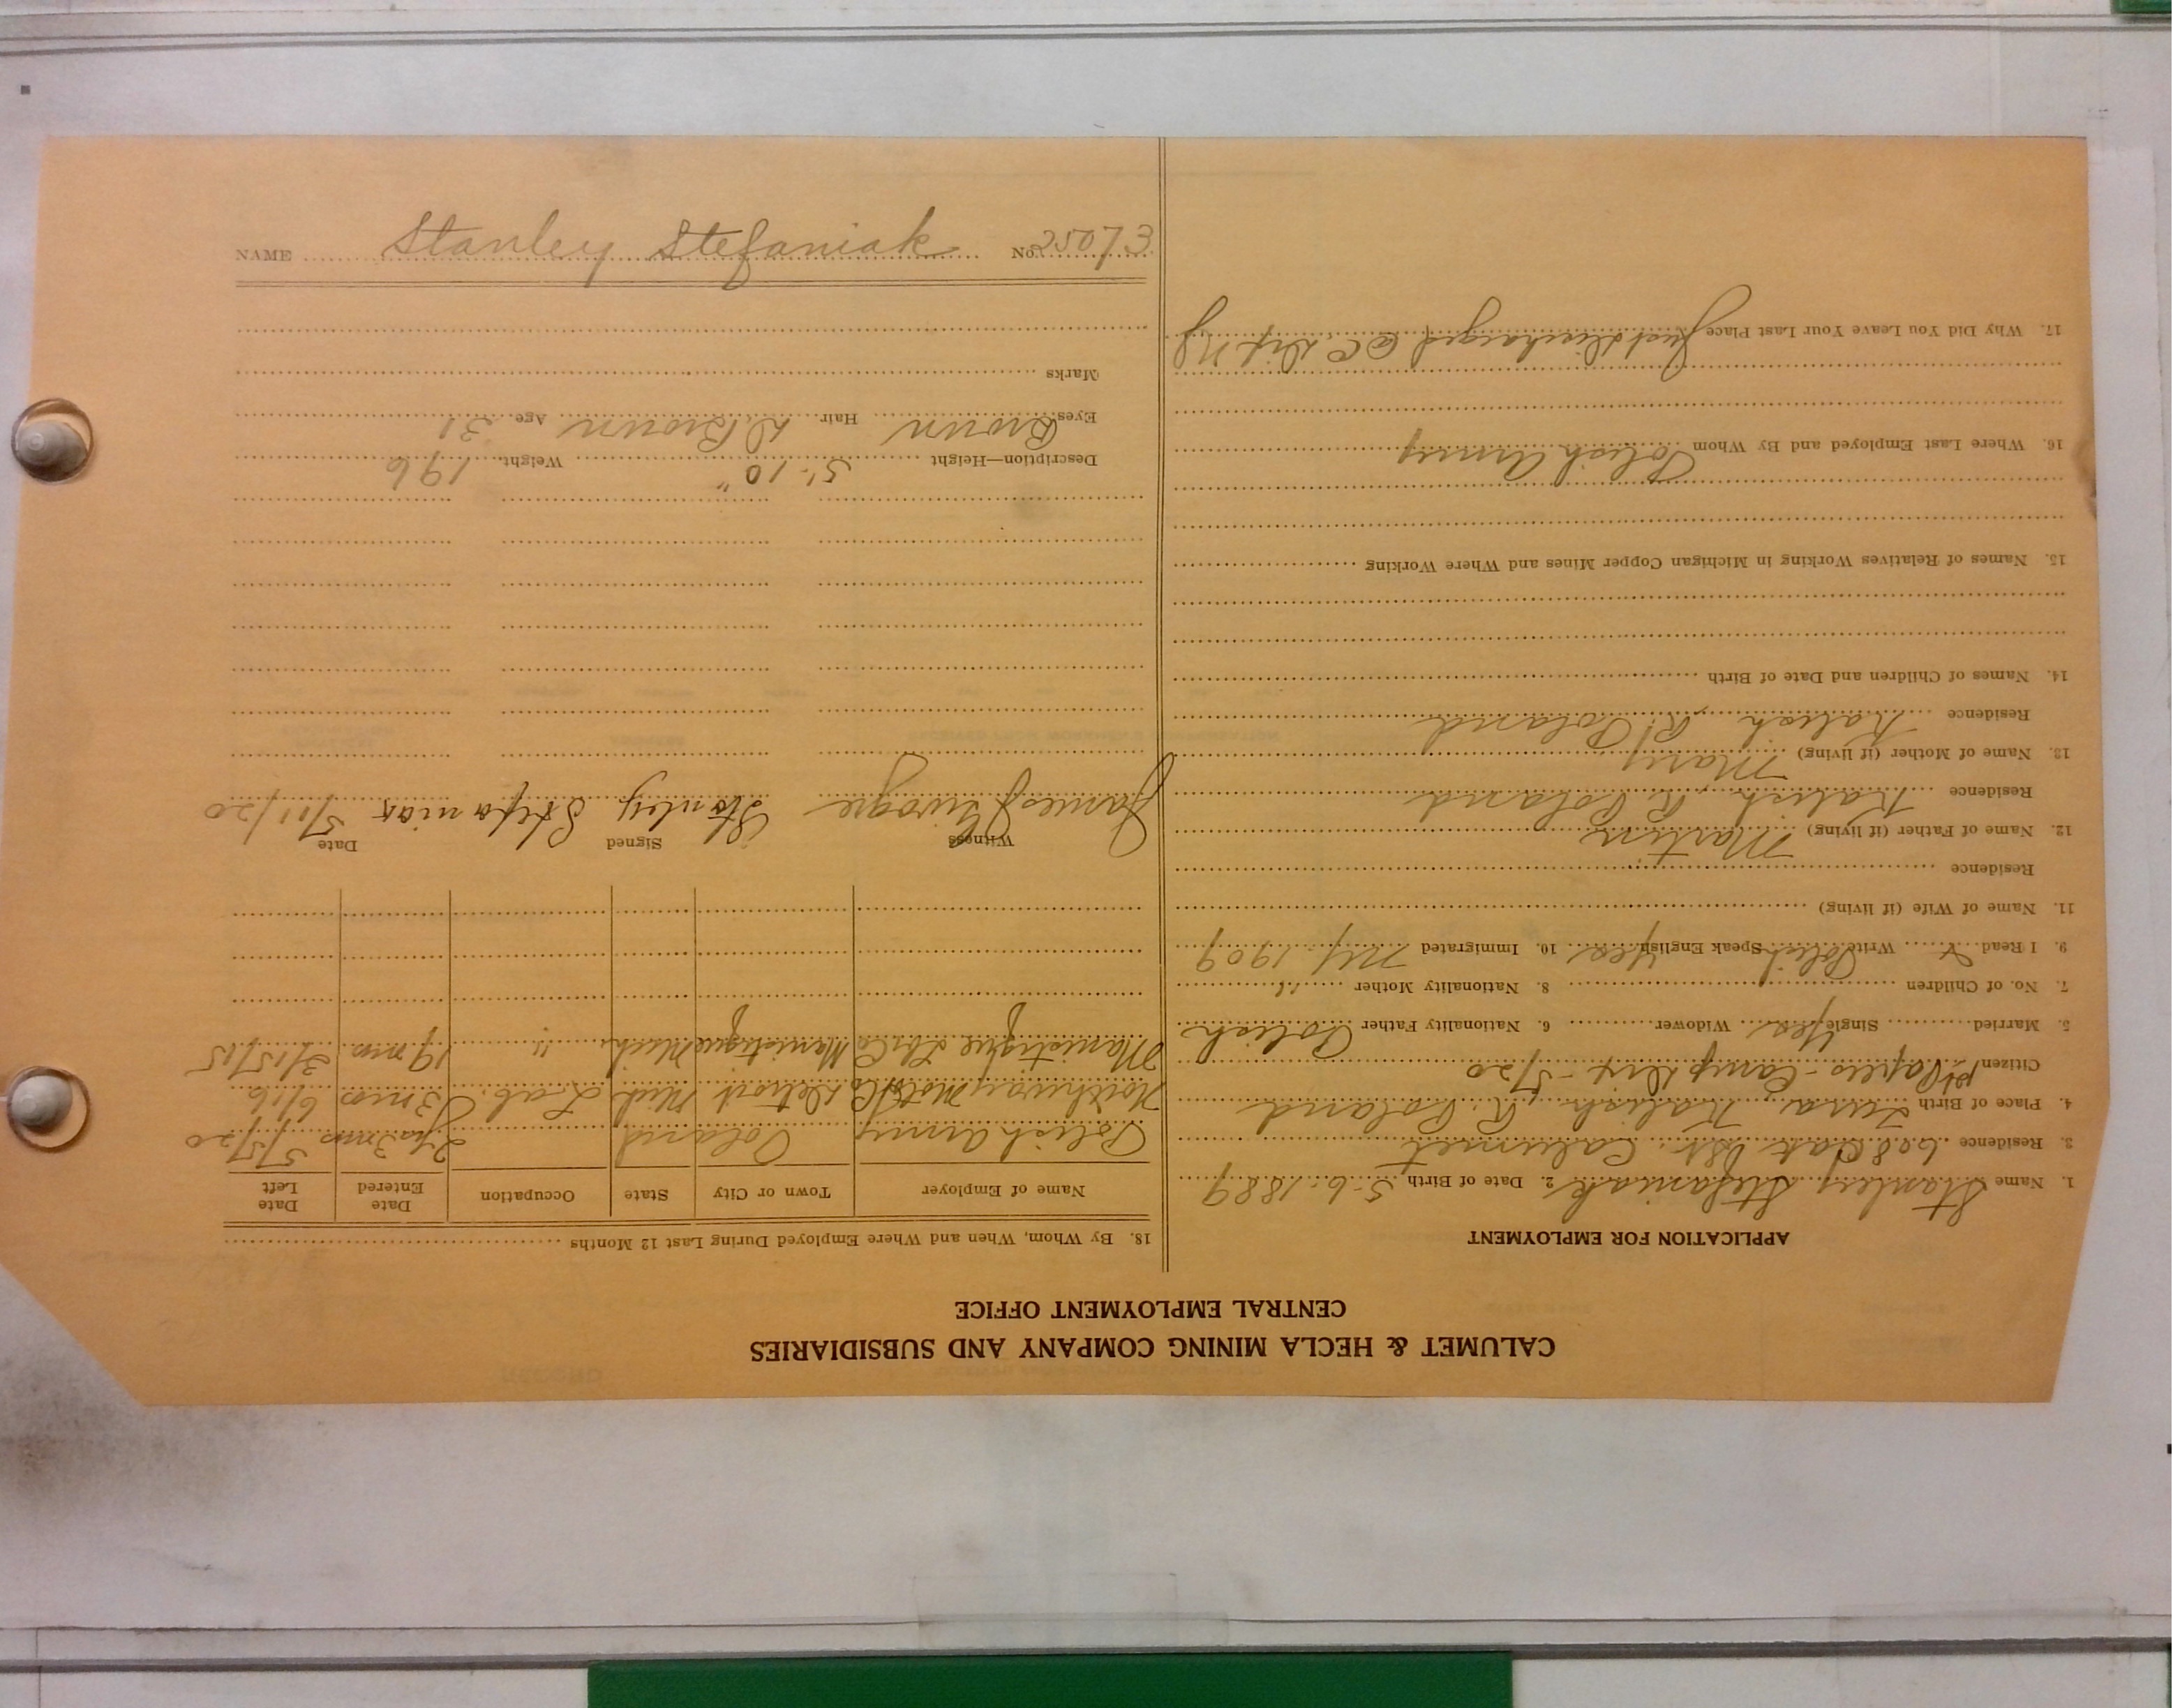 CALUMET & HECLA MINING COMPANY AND SUBSIDIARIES
CENTRAL EMPLOYMENT OFFICE
APPLICATION FOR EMPLOYMENT
1. Name Stanley Stefaniak 2. Date of Birth 5-6-1889
3. Residence 608 Oak Str. Calumet
4. Place of Birth Kalish, R. Poland
Citizen 1st Papers - Camp Dix - 5/20
5. Married Single Yes Widower 6. Nationality Father Polish
7. No. of Children 8. Nationality Mother "
9. I Read & Write Polish Speak English Yes 10. Immigrated NY. 1909
11. Name of Wife (if living)
Residence
12. Name of Father (if living) Martin
Residence Kalish, R. Poland
13. Name of Mother (if living) Mary
Residence Kalish, R. Poland
14. Names of Children and Date of Birth
15. Names of Relatives Working in Michigan Copper Mines and Where Working
16. Where Last Employed and By Whom Polish Army
17. Why Did You Leave Your Last Place Just discharged @ C. Dix NJ
18. By Whom, When and Where Employed During Last 12 Months
Name of Employer Town or City State Occupation Date Entered Date Left
Polish Army Poland 2 yrs 3 mos 5/5/20
Northway Motor Co Detroit Mich Lab. 3 mos 6/16
Manistique Lbr Co Manistique Mich " 19 mos 3/15/15
Witness Signed Date
James Stanley Stefaniak 5/11/20
Description—Height 5'-10" Weight 196
Eyes Brown Hair D. Brown Age 31
Marks
NAME Stanley Stefaniak No. 25073